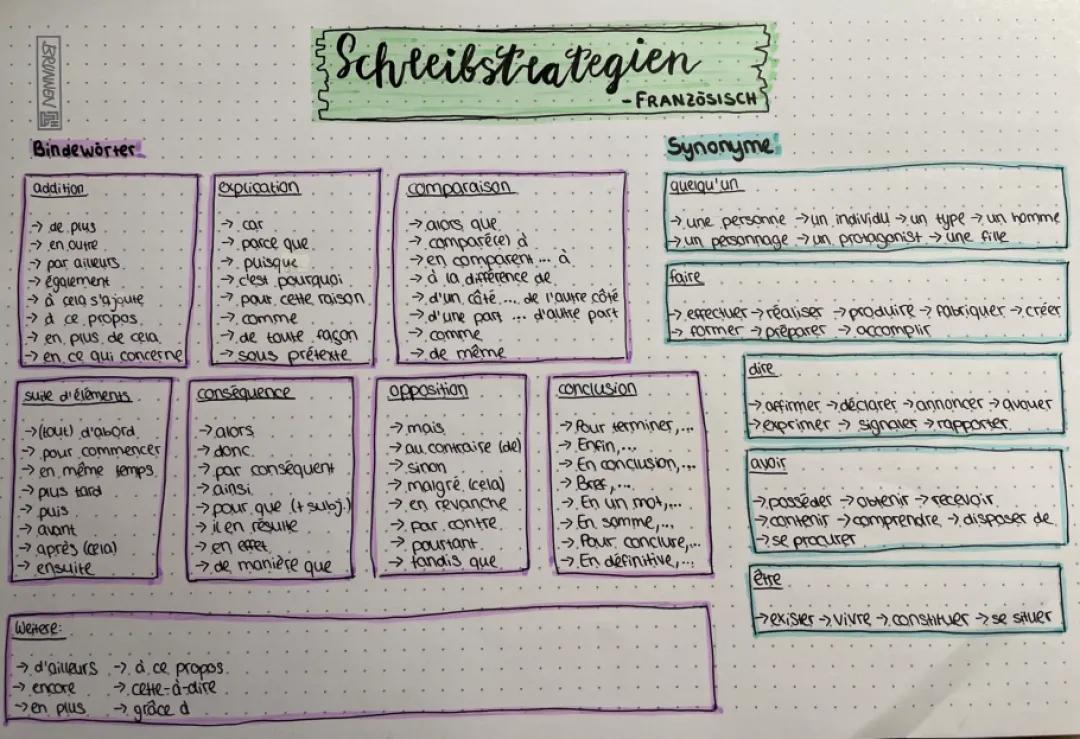 BRUNNEN
Schreibstrategien
- FRANZÖSISCH
Bindewörter:
addition
→ de plus
→ en outre
→ par ailleurs
→ également
→ à cela s'ajoute
→ à ce propos
→ en plus de cela
→ en ce qui concerne
explication
→ car
→ parce que
→ puisque
→ c'est pourquoi
→ pour cette raison
→ comme
→ de toute façon
→ sous prétexte
comparaison
→ alors que
→ comparé(e) à
→ en comparent ... à
→ à la différence de
→ d'un côté ... de l'autre côté
→ d'une part ... d'autre part
→ comme
→ de même
suite d'éléments
→ (tout) d'abord
→ pour commencer
→ en même temps
→ plus tard
→ puis
→ avant
→ après (cela)
→ ensuite
conséquence
→ alors
→ donc
→ par conséquent
→ ainsi
→ pour que (+ subj.)
→ il en résulte
→ en effet
→ de manière que
opposition
→ mais
→ au contraire (de)
→ sinon
→ malgré (cela)
→ en revanche
→ par contre
→ pourtant
→ tandis que
conclusion
→ Pour terminer,...
→ Enfin,...
→ En conclusion,...
→ Bref,...
→ En un mot,...
→ En somme,...
→ Pour conclure,...
→ En définitive,...
Weitere:
→ d'ailleurs → à ce propos
→ encore → cette-à-dire
→ en plus → grâce à
Synonyme:
quelqu'un
→ une personne → un individu → un type → un homme
→ un personnage → un protagonist → une fille
faire
→ effectuer → réaliser → produire → fabriquer → créer
→ former → préparer → accomplir
dire
→ affirmer → déclarer → annoncer → avouer
→ exprimer → signaler → rapporter
avoir
→ posséder → obtenir → recevoir
→ contenir → comprendre → disposer de
→ se procurer
être
→ exister → vivre → constituer → se situer